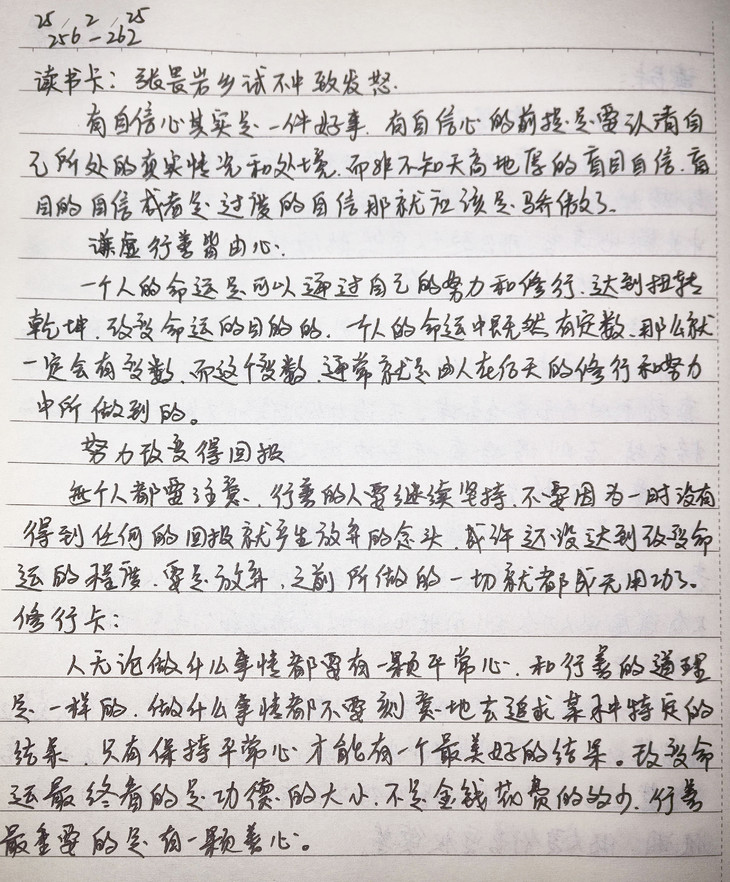 25/2/25
256-262
读书卡：张畏岩乡试不中致发怒.
有自信心其实是一件好事.有自信心的前提是要认清自
己所处的真实情况和处境.而非不知天高地厚的盲目自信.盲
目的自信或者是过度的自信那就应该是骄傲了。
谦虚行善皆由心.
一个人的命运是可以通过自己的努力和修行.达到扭转
乾坤.改变命运的目的的.一个人的命运中既然有定数.那么就
一定会有变数.而这个变数.通常就是由人在后天的修行和努力
中所做到的。
努力改变得回报
每个人都要注意.行善的人要继续坚持.不要因为一时没有
得到任何的回报就产生放弃的念头.或许还没达到改变命
运的程度.要是放弃.之前所做的一切就都成无用功了。
修行卡：
人无论做什么事情都要有一颗平常心.和行善的道理
是一样的.做什么事情都不要刻意地去追求某种特定的
结果.只有保持平常心才能有一个最美好的结果。改变命
运最终看的是功德的大小.不是金钱花费的多少.行善
最重要的是有一颗善心。